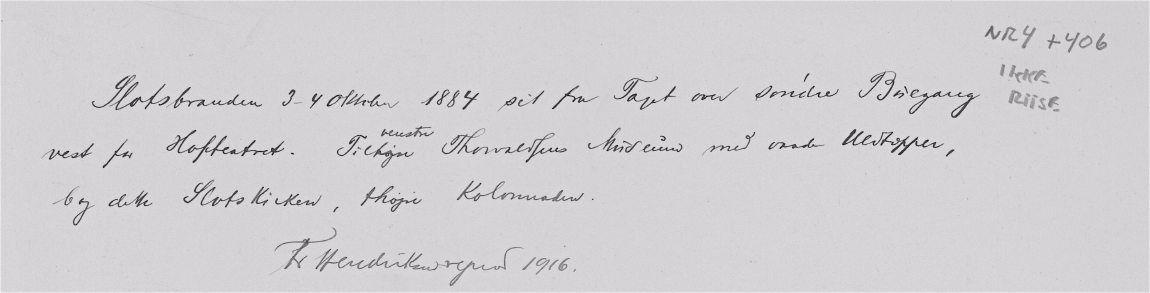 NR 4 + 406
IKKE
RIISE
Slotsbranden 3-4 Oktober 1884 set fra Taget over søndre Buegang
vest for Hofteatret. Tilhøjre venstre Thorvaldsens Museum med vaade Uldtæpper,
bag dette Slotskirken, t højre Kolonnaden.
Fr Hendriksen reprod 1916.